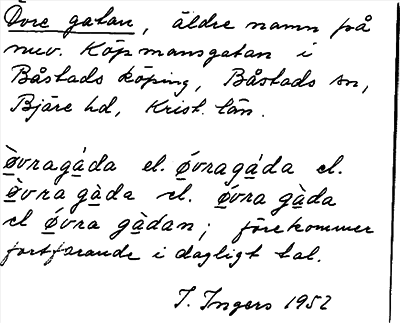 Övre gatan, äldre namn på
nuv. Köpmansgatan i
Båstads köping, Båstads sn,
Bjäre hd, Krist. län.
ö̀vragáda el. ǿvragáda el.
ö̀vra gàda el. ǿvra gàda
el ǿvra gàdan; förekommer
fortfarande i dagligt tal.
I. Ingers 1952